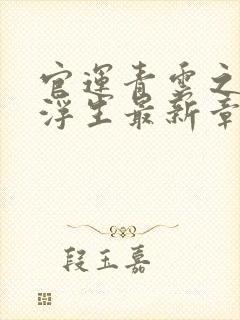 官运青云之
浮生最新章
段玉嘉